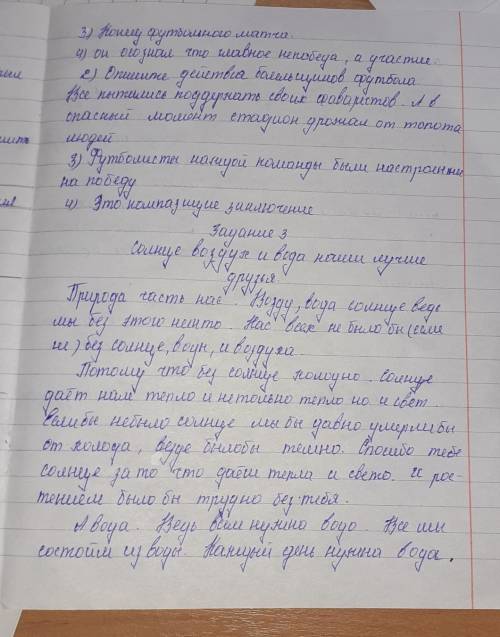 3) Концу футбольного матча.
4) он огознал что главное непобеда, а участие.
с) Опишите действия болельщиков футбола
Все пытались поддержать своих фаваристов. А в
опасный момент стадион дрожал от топота
людей
3) Футболисты каждой команды были настроенны
на победу
4) Это компазицие заключение
Задание 3
Солнце воздух и вода наши лучше
друзья.
Природа часть нас. Возду, вода солнце ведь
мы без этого некто. Нас всех не было бы (если
не) без солнце, воды, и воздуха.
Потому что без солнце холодно. Солнце
даёт нам тепло и нетолько тепло но и свет.
Еслибы небыло солнце мы бы давно умерлибы
от холода, везде былобы темно. Спосибо тебе
солнце за то что даёш тепла и свето. И рос-
тением было бы трудно без тебя.
А вода. Ведь вам нужно водо. Все мы
состойм из воды. Каждый день нужна вода.